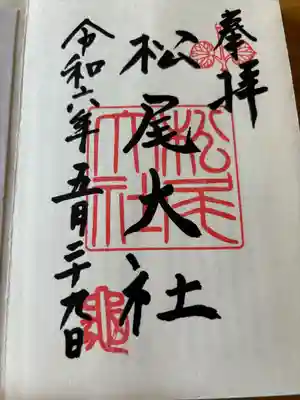 奉拝
松尾大社
松尾大社
令和六年五月二十九日
亀